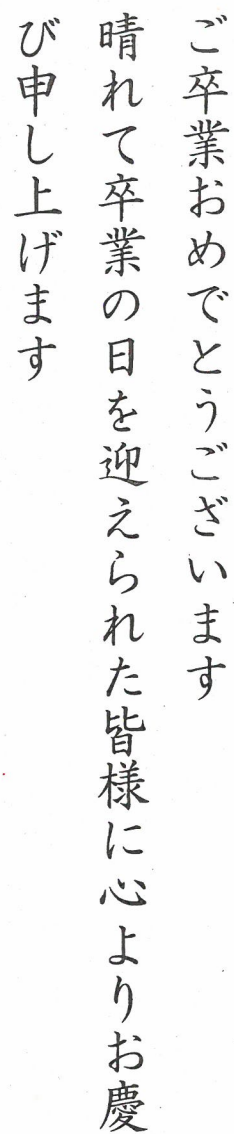 ご卒業おめでとうございます
晴れて卒業の日を迎えられた皆様に心よりお慶
び申し上げます